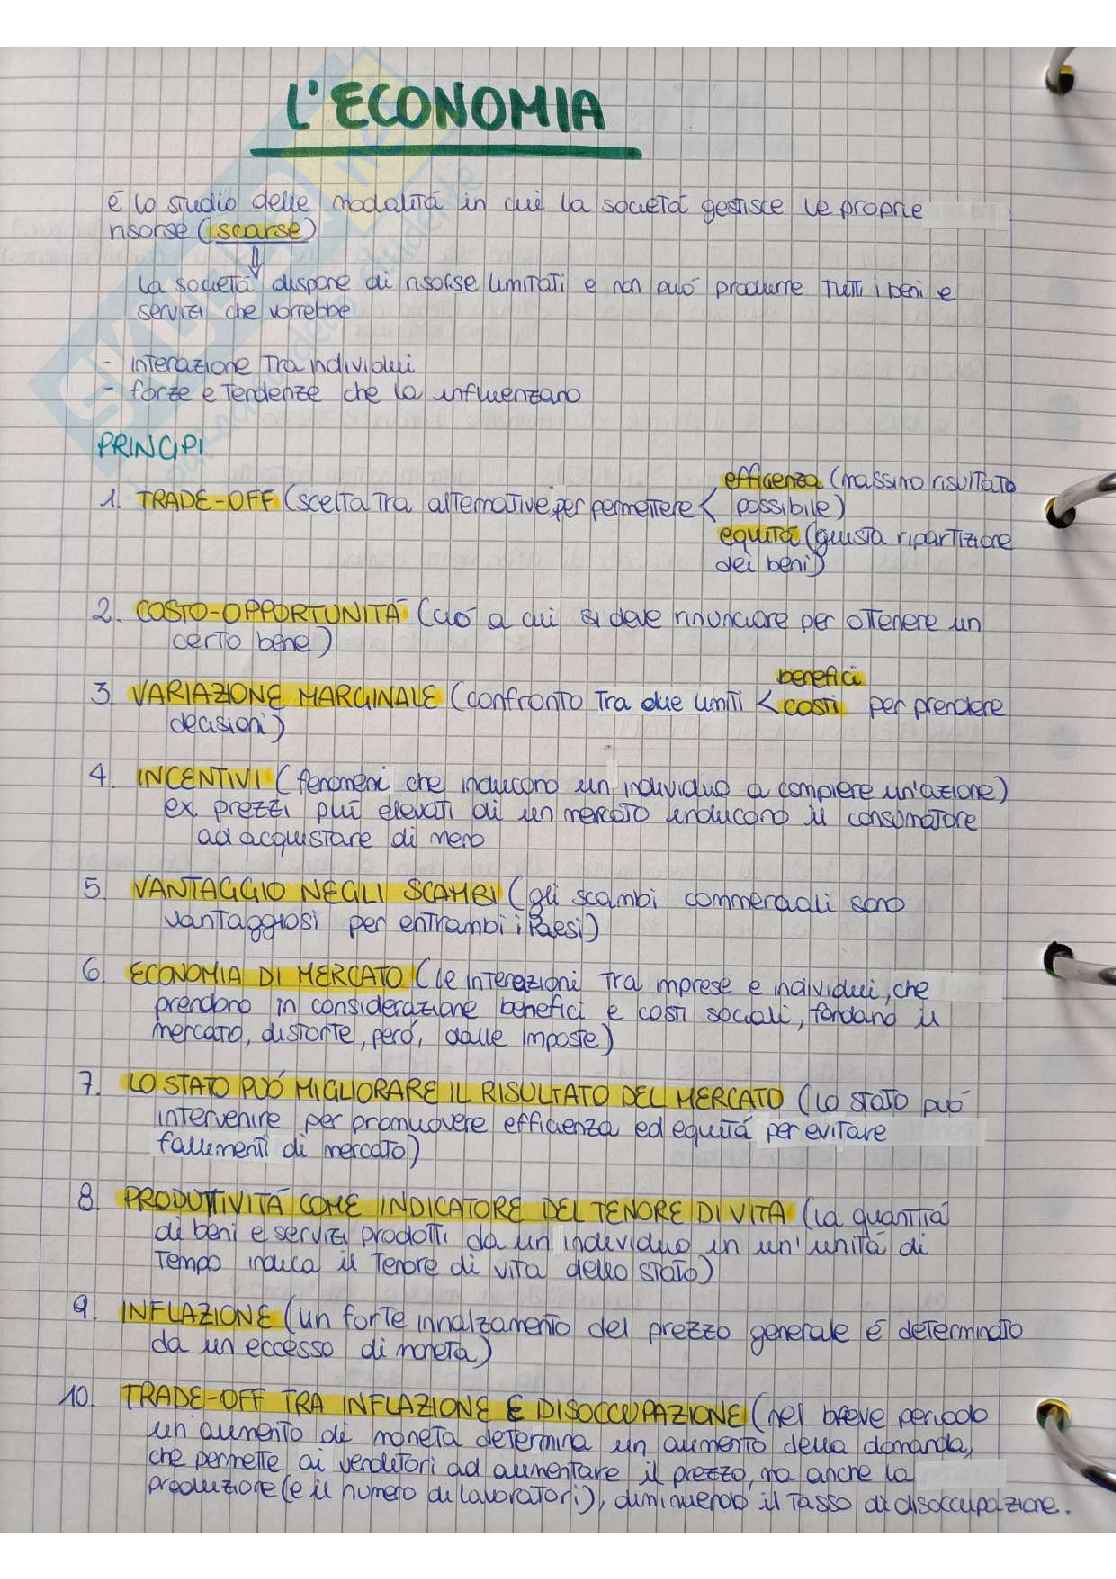 L'ECONOMIA
é lo studio delle modalitá in cui la societá gestisce le proprie
risorse (scarse)
la societá dispone di risorse limitati e non puó produrre tutti i beni e
servizi che vorrebbe
- interazione tra individui
- forze e tendenze che la influenzano
PRINCIPI
efficienza (massimo risultato
1. TRADE-OFF (scelta tra alternative per permettere < possibile)
equitá (giusta ripartizione
dei beni)
2. COSTO-OPPORTUNITÁ (ció a cui si deve rinunciare per ottenere un
certo bene)
benefici
3. VARIAZIONE MARGINALE (confronto tra due uniti < costi per prendere
decisioni)
4. INCENTIVI (fenomeni che inducono un individuo a compiere un'azione)
ex. prezzi piú elevati di un mercato inducono il consumatore
ad acquistare di meno
5. VANTAGGIO NEGLI SCAMBI (gli scambi commerciali sono
vantaggiosi per entrambi i Paesi)
6. ECONOMIA DI MERCATO (le interazioni tra imprese e individui, che
prendono in considerazione benefici e costi sociali, fondano il
mercato, distorte, peró, dalle imposte)
7. LO STATO PUÓ MIGLIORARE IL RISULTATO DEL MERCATO (lo stato puó
intervenire per promuovere efficienza ed equitá per evitare
fallimenti di mercato)
8. PRODUTTIVITÁ COME INDICATORE DEL TENORE DI VITA (la quantitá
di beni e servizi prodotti da un individuo in un'unitá di
tempo indica il tenore di vita dello stato)
9. INFLAZIONE (un forte innalzamento del prezzo generale é determinato
da un eccesso di moneta)
10. TRADE-OFF TRA INFLAZIONE E DISOCCUPAZIONE (nel breve periodo
un aumento di moneta determina un aumento della domanda,
che permette ai venditori ad aumentare il prezzo, ma anche la
produzione (e il numero di lavoratori), diminuendo il tasso di disoccupazione.